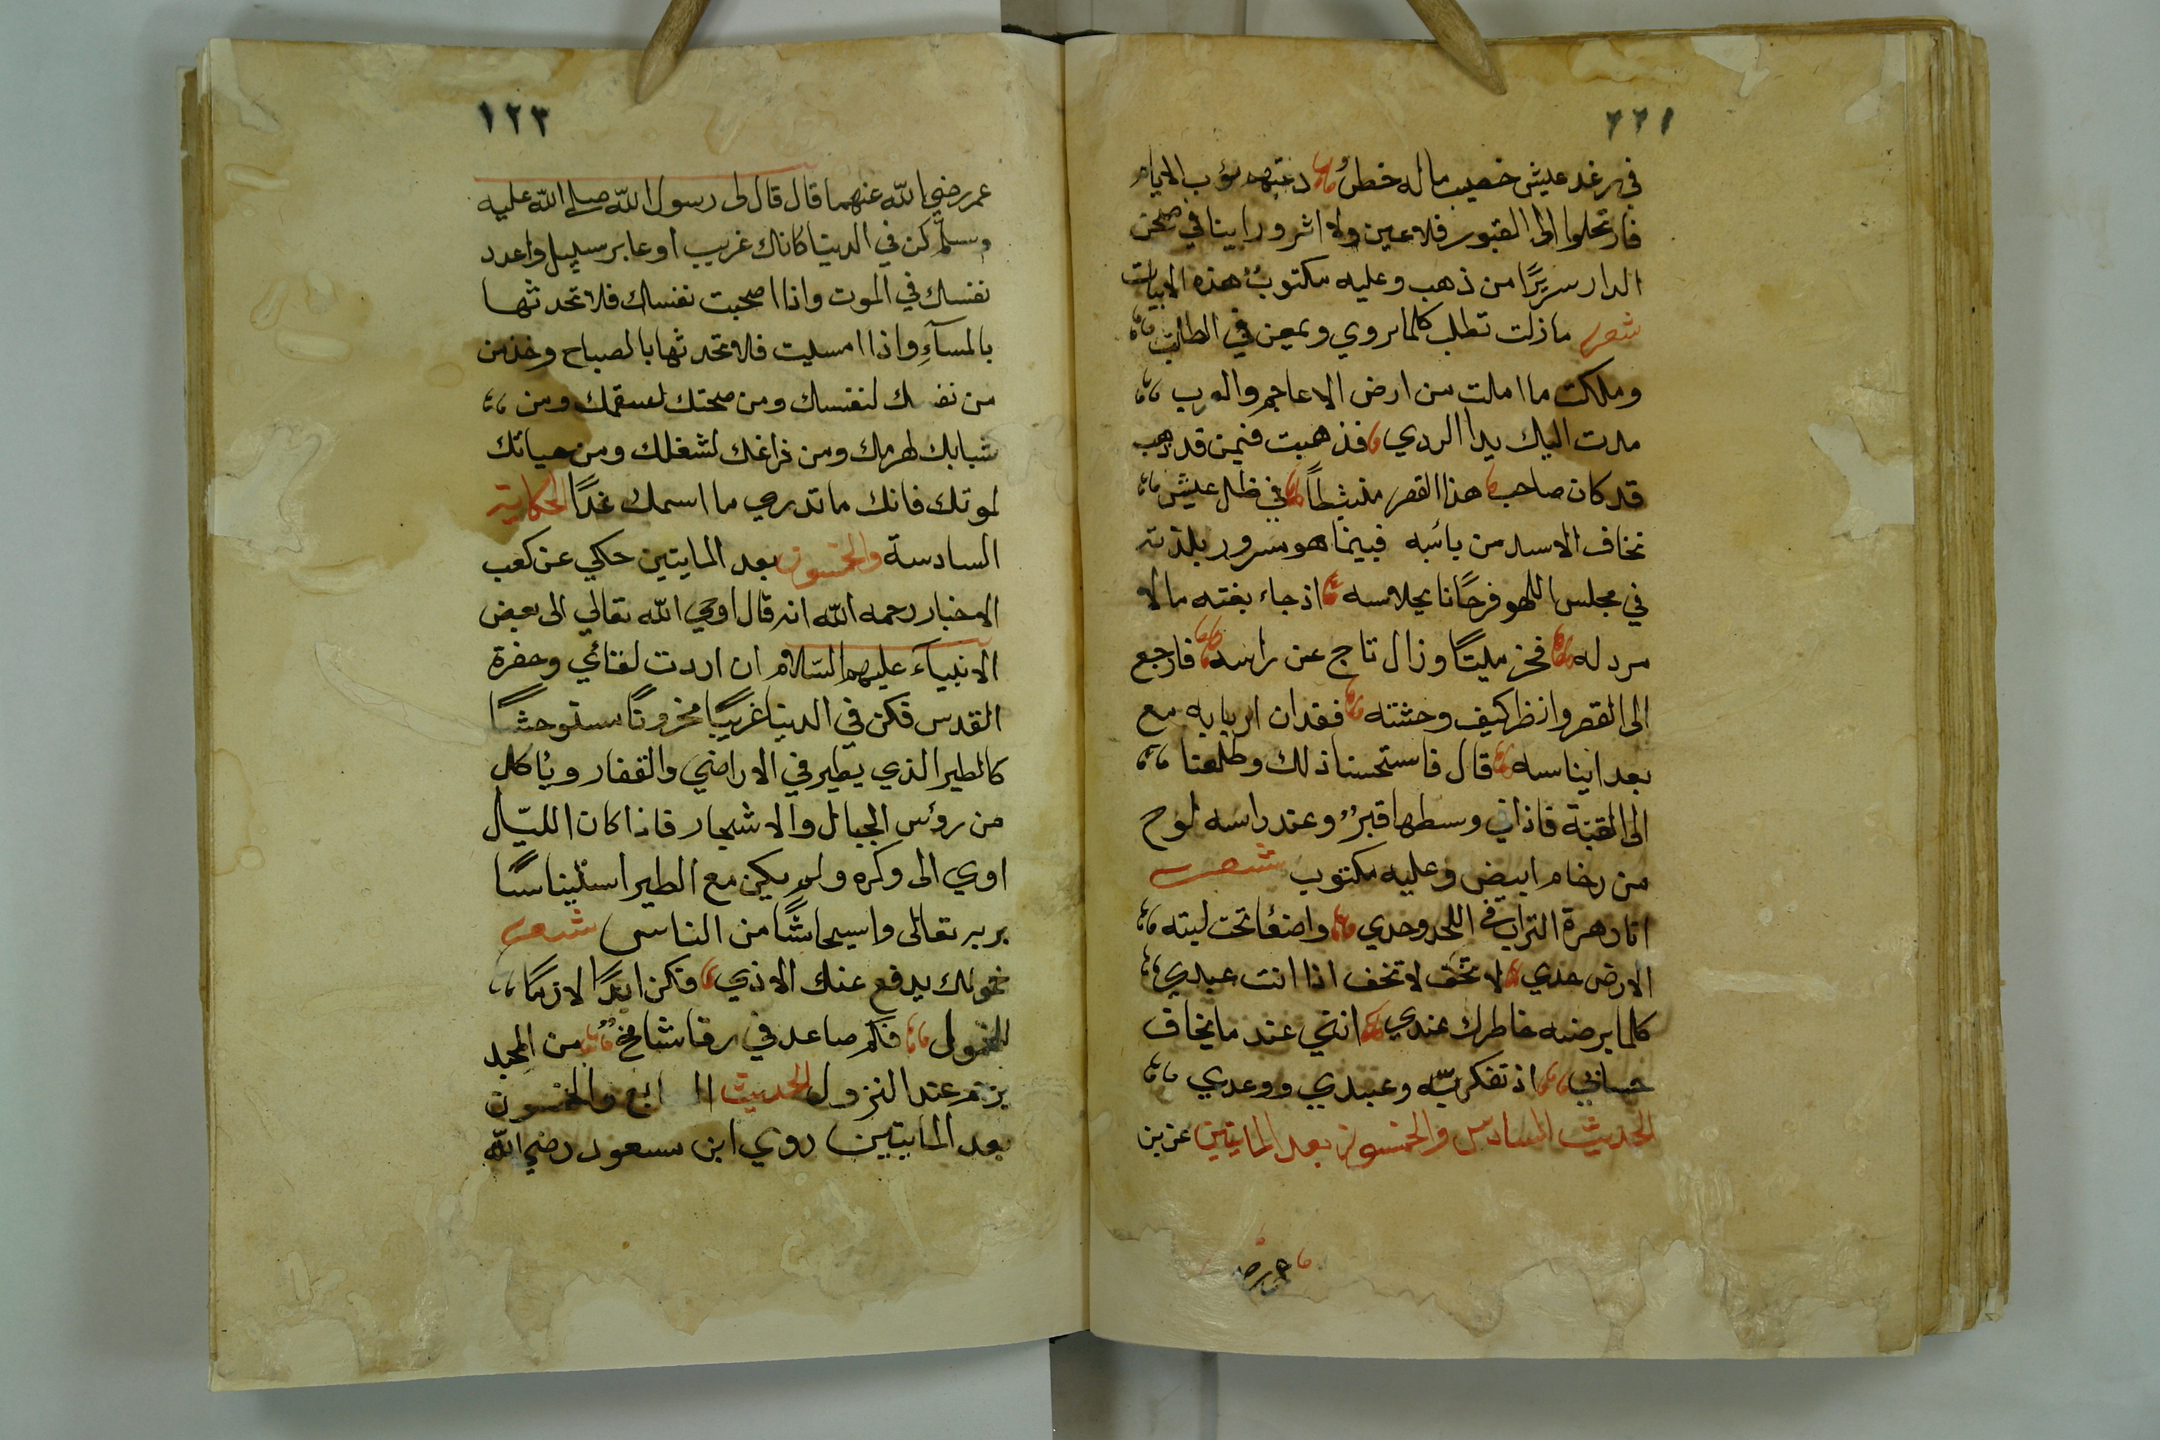 ٢٢١
في رغد عيش خصيب ماله خطر دعتهم نؤب الايام
فارتحلوا الى القبور فلا عين ولا اثر وراينا في صحن
الدار سريرًا من ذهب وعليه مكتوبٌ هذه الابيات
شعر مازلت تطلب كلما تروي وتمعن في الطلب
وملكت ما املت من ارض الاعاجم والعرب
مدت اليك يدا الردي فذهبت فيمن قد ذهب
قد كان صاحب هذا القصر منبثطاً في ظل عيش
تخاف الاسد من بائسه فبينما هو مسرور بلذته
في مجلس اللهو فرحًانا بجلاسه اذ جاء بغته ما لا
مرد له فخر ميتًا وزال تاج عن راسه فارجع
الى القصر وانظر كيف وحشته فقدان اربابه مع
بعد ايناسه قال فاستحسنا ذلك وطلعنا
الى القبة فاذا في وسطها قبرٌ وعند راسه لوح
من رخام ابيض وعليه مكتوب شعر
انا رهرة التراب في اللحد وحدي واضعًا تحت لبته
الارض خدي لا تخف لا تخف اذا انت عبدي
كلما يرضه خاطرك عندي انني عند ما يخاف
حسابي اذ تفكر يته وعبدي ووعدي
الحديث السادس والخمسون بعد المايتين عن بن
عمر رضي
١٢٣
عمر رضي الله عنهما قال قال لى رسول الله صلى الله عليه
وسلم كن في الدينا كانك غريب او عابر سبيل واعدد
نفسك في الموت واذا اصبحت نفسك فلا تحدثها
بالمسآءِ واذا امسيت فلا تحدثها بالصباح وخذ من
من نفسك لنفسك ومن صحتك لسقمك ومن
شبابك لهرمك ومن فراغك لشغلك ومن حياتك
لموتك فانك ما تدري ما اسمك غدًا الحكاية
السادسة والخمسون بعد المايتين حكي عن كعب
الاخبار رحمه الله انه قال اوحي الله تعالي الى بعض
الانبيآء عليهم السلام ان اردت لقائي وحفرة
القدس فكن في الدينا غريبًا محزونًا مستوحشًا
كالطير الذي يطير في الاراضي والقفار وياكل
من رؤس الجبال والاشجار فاذا كان الليل
اوي الى وكره ولم يكن مع الطير استيناسًا
بربه تعالى واسيحاشًا من الناس شعر
خمولك يدفع عنك الاذي فكن ابدًا لازمًا
للخمولى فكم صاعد في رقا شامخٌ من المجد
يزهر عند النزول الحديث الـ ابع والخمسون
بعد المايتين روي ابن مسعود رضي الله